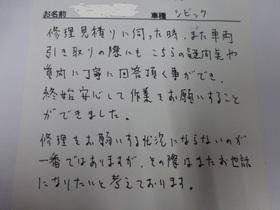 お名前 車種 シビック
修理見積りに伺った時、また車両
引き取りの際にもこちらの疑問点や
質問に丁寧に回答頂く事ができ、
終始安心して作業をお願いすること
ができました。
修理をお願いする状況にならないのが
一番ではありますが、その際はまたお世話
になりたいと考えております。